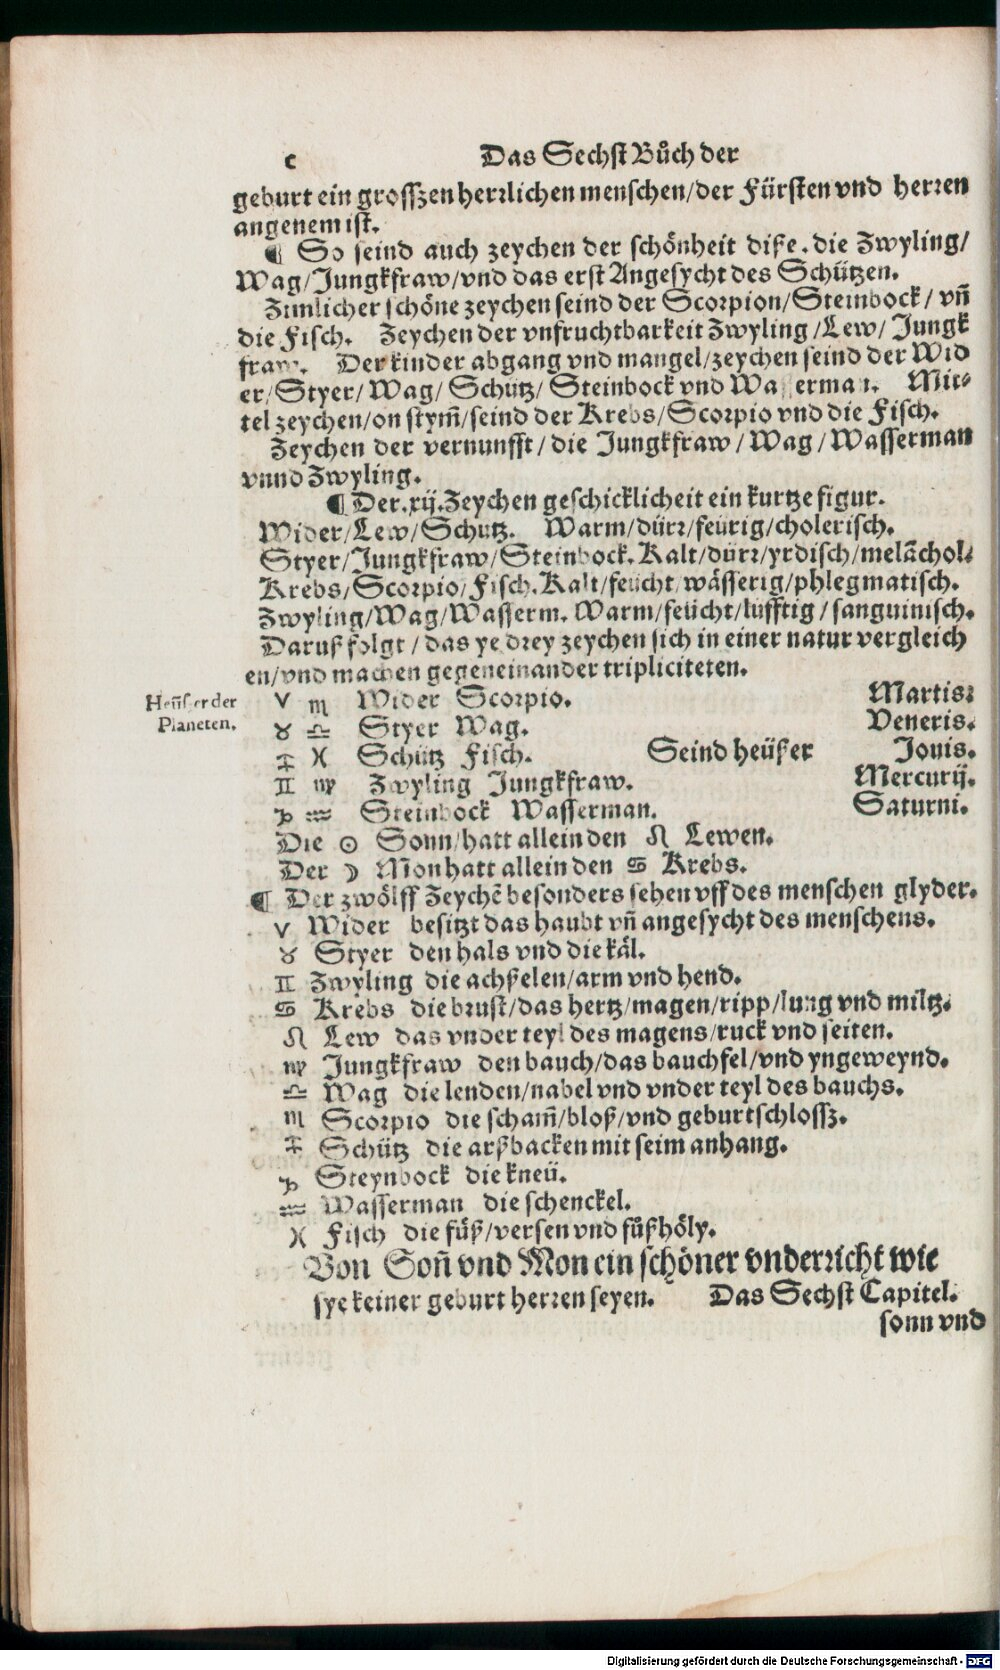 c Das Sechst Bůch der
geburt ein grosszen herꝛlichen menschen/der Fürsten vnd herꝛen
angenem ist.
¶ So seind auch zeychen der schönheit diße. die Zwyling/
Wag/Jungkfraw/vnd das erst Angesycht des Schützen.
Zimlicher schöne zeychen seind der Scorpion/Steinbock/vñ
die Fisch. Zeychen der vnfruchtbarkeit Zwyling/Lew/Jungk
fraw. Der kinder abgang vnd mangel/zeychen seind der Wid
er/Styer/Wag/Schütz/Steinbock vnd Wasserman. Mit⸗
tel zeychen/on stym̃/seind der Krebs/Scorpio vnd die Fisch.
Zeychen der vernunfft/die Jungkfraw/Wag/Wasserman
vnnd Zwyling.
¶ Der.xij.Zeychen geschicklicheit ein kurtze figur.
Wider/Lew/Schutz. Warm/dürꝛ/feürig/cholerisch.
Styer/Jungkfraw/Steinbock. Kalt/dürꝛ/yrdisch/melãchol⸗
Krebs/Scorpio/Fisch. Kalt/feücht/wässerig/phlegmatisch.
Zwyling/Wag/Wasserm. Warm/feücht/lüfftig/sanguinisch.
Daruß folgt/das ye drey zeychen sich in einer natur vergleich
en/vnd machen gegeneinander tripliciteten.
Heüser der
Planeten.
♈ ♏ Wider Scorpio. Martis.
♉ ♎ Styer Wag. Veneris.
♐ ♓ Schütz Fisch. Seind heüßer Jouis.
♊ ♍ Zwyling Jungkfraw. Mercurij.
♑ ♒ Steinbock Wasserman. Saturni.
Die ☉ Sonn/hatt allein den ♌ Lewen.
Der ☽ Mon hatt allein den ♋ Krebs.
¶ Der zwölff Zeychẽ besonders sehen vff des menschen glyder.
♈ Wider besitzt das haubt vñ angesycht des menschens.
♉ Styer den hals vnd die käl.
♊ Zwyling die achßelen/arm vnd hend.
♋ Krebs die brust/das hertz/magen/ripp/lung vnd miltz.
♌ Lew das vnder teyl des magens/ruck vnd seiten.
♍ Jungkfraw den bauch/das bauchfel/vnd yngeweynd.
♎ Wag die lenden/nabel vnd vnder teyl des bauchs.
♏ Scorpio die scham̃/bloß/vnd geburtschlossz.
♐ Schütz die arßbacken mit seim anhang.
♑ Steynbock die kneü.
♒ Wasserman die schenckel.
♓ Fisch die füß/versen vnd fůßhöly.
Von Soñ vnd Mon ein schöner vnderꝛicht wie
sye keiner geburt herꝛen seyen. Das Sechst Capitel.
sonn vnd
Digitalisierung gefördert durch die Deutsche Forschungsgemeinschaft - DFG